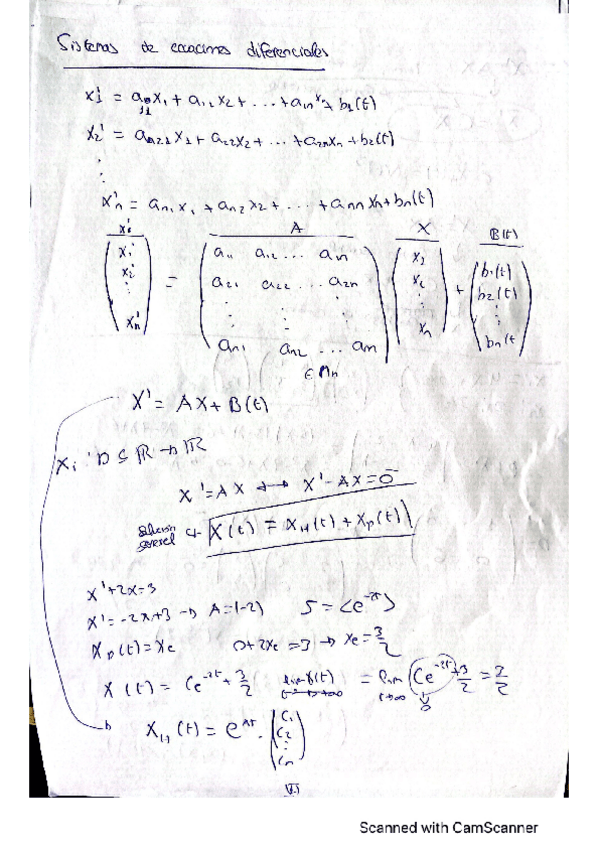 Sistemas de ecuaciones diferenciales
x1' = a11x1 + a12x2 + ... + a1nxn + b1(t)
x2' = a21x1 + a22x2 + ... + a2nxn + b2(t)
⋮
x'n = an1x1 + an2x2 + ... + annxn + bn(t)
X' A X B(t)
(x1' x2' ⋮ xn') = (a11 a12 ... a1n a21 a22 ... a2n ⋮ ⋮ ⋮ an1 an2 ... ann) (x1 x2 ⋮ xn) + (b1(t) b2(t) ⋮ bn(t)
∈ Mn
X' = AX + B(t)
xi : D ⊆ ℝ → ℝ
X' = AX ↔ X' - AX = 0̄
solución general X(t) = XH(t) + Xp(t)
x' + 2x = 3
x' = -2x + 3 → A = (-2) S = <e^-2t>
Xp(t) = xe 0 + 2xe = 3 → xe = 3/2
X(t) = Ce^-2t + 3/2 lim X(t) t→+∞ = lim t→∞ (Ce^-2t + 3/2 = 3/2
↓ 0
XH(t) = e^At · (C1 C2 ⋮ Cn)